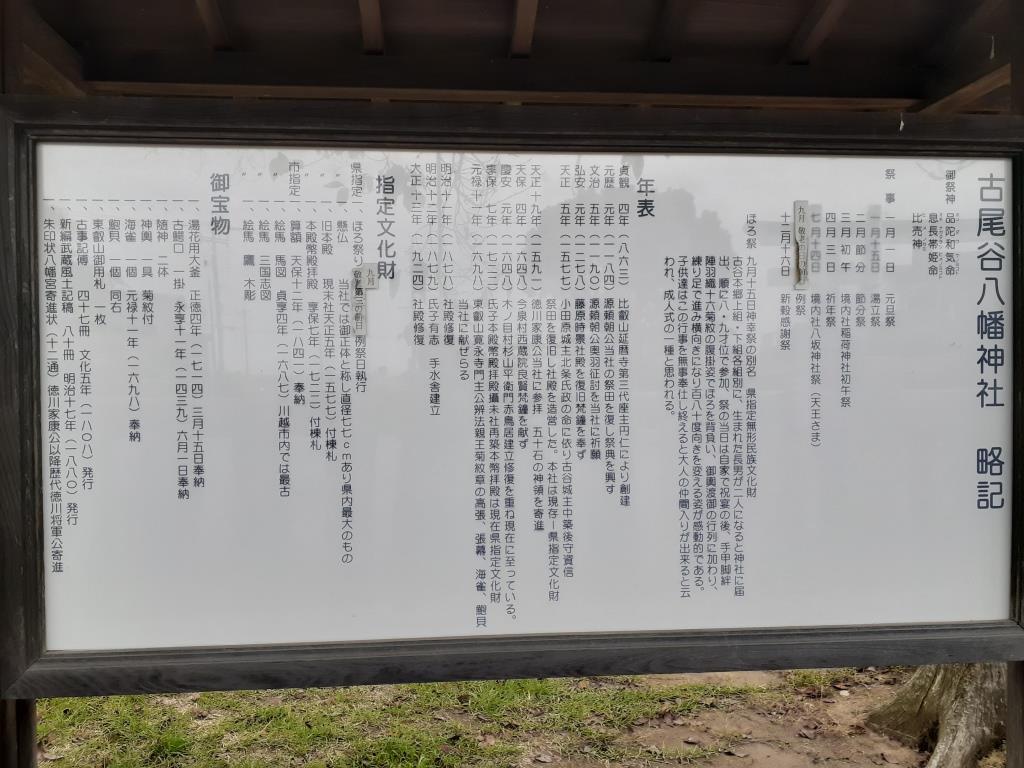 古尾谷八幡神社　略記
御祭神　品陀和気命
息長帯姫命
比売神
祭　事　一月　一日　元旦祭
一月十五日　湯立祭
二月　節分　節分祭
三月　初午　境内社稲荷神社初午祭
四月　三日　祈年祭
七月十四日　境内社八坂神社祭（天王さま）
九月　敬老の日の前日　例祭
十二月十六日　新穀感謝祭
ほろ祭　九月十五日神幸祭の別名　県指定無形民族文化財
古谷本郷上組・下組各組別に、生まれた長男が二人になると神社に届
出、順に八・九才位で参加、祭の当日は自家で祝宴の後、手甲脚絆
陣羽織十六菊紋の腹掛姿でほろを背負い、御輿渡御の行列に加わり、
練り足で進み横向きになり百八十度向きを変える姿が感動的である。
子供達はこの行事を無事奉仕し終えると大人の仲間入りが出来ると云
われ、成人式の一種と思われる。
年表
貞観　四年（八六三）比叡山延暦寺第三代座主円仁により創建
元歴　元年（一一八四）源頼朝公当社の祭田を復し祭典を興す
文治　五年（一一九〇）源頼朝公奥羽征討を当社に祈願
弘安　元年（一二七八）藤原時景社殿を復旧梵鐘を奉ず
天正　五年（一五七七）小田原城主北条氏政の命に依り古谷城主中築後守資信
祭田を復旧し社殿を造営した。本社は現存ー県指定文化財
天正十九年（一五九一）徳川家康公当社に参拝　五十石の神領を寄進
天保　四年（一六四七）今泉村西蔵院良賢梵鐘を献ず
慶安　元年（一六四八）木ノ目村杉山平衛門赤鳥居建立修復を重ね現在に至っている。
享保　七年（一七二二）氏子本殿幣殿拝殿攝末社再築本幣拝殿は現在県指定文化財
元禄十一年（一六九八）東叡山寛永寺門主公辨法親王菊紋章の高張、張幕、海雀、鮑貝
当社に献ぜらる
明治十一年（一八七八）社殿修復
明治十二年（一八七九）氏子有志　手水舎建立
大正十三年（一九二四）社殿修復
指定文化財
県指定一、ほろ祭り　九月　敬老　第三の前日　例祭日執行
〃　一、懸仏　当社では御正体と称し直径七七ｃｍあり県内最大のもの
〃　一、旧本殿　現末社天正五年（一五七七）付棟札
〃　一、本殿幣殿拝殿　享保七年（一七二二）付棟札
市指定一、算額　天保十二年（一八四一）奉納
〃　一、絵馬　馬図　貞享四年（一六八七）川越市内では最古
〃　一、絵馬　三国志図
〃　一、絵馬　鷹　木彫
御宝物
一、湯花用大釜　正徳四年（一七一四）三月十五日奉納
一、古鰐口　一掛　永享十一年（一四三九）六月一日奉納
一、随神　二体
一、神輿　一具　菊紋付
一、海雀　一個　元禄十一年（一六九八）奉納
一、鮑貝　一個　同右
一、東叡山御用札　一枚
一、古事記傳　四十七冊　文化五年（一八〇八）発行
一、新編武蔵風土記稿　八十冊　明治十七年（一八八〇）発行
一、朱印状八幡宮寄進状（十二通）徳川家康公以降歴代徳川将軍公寄進